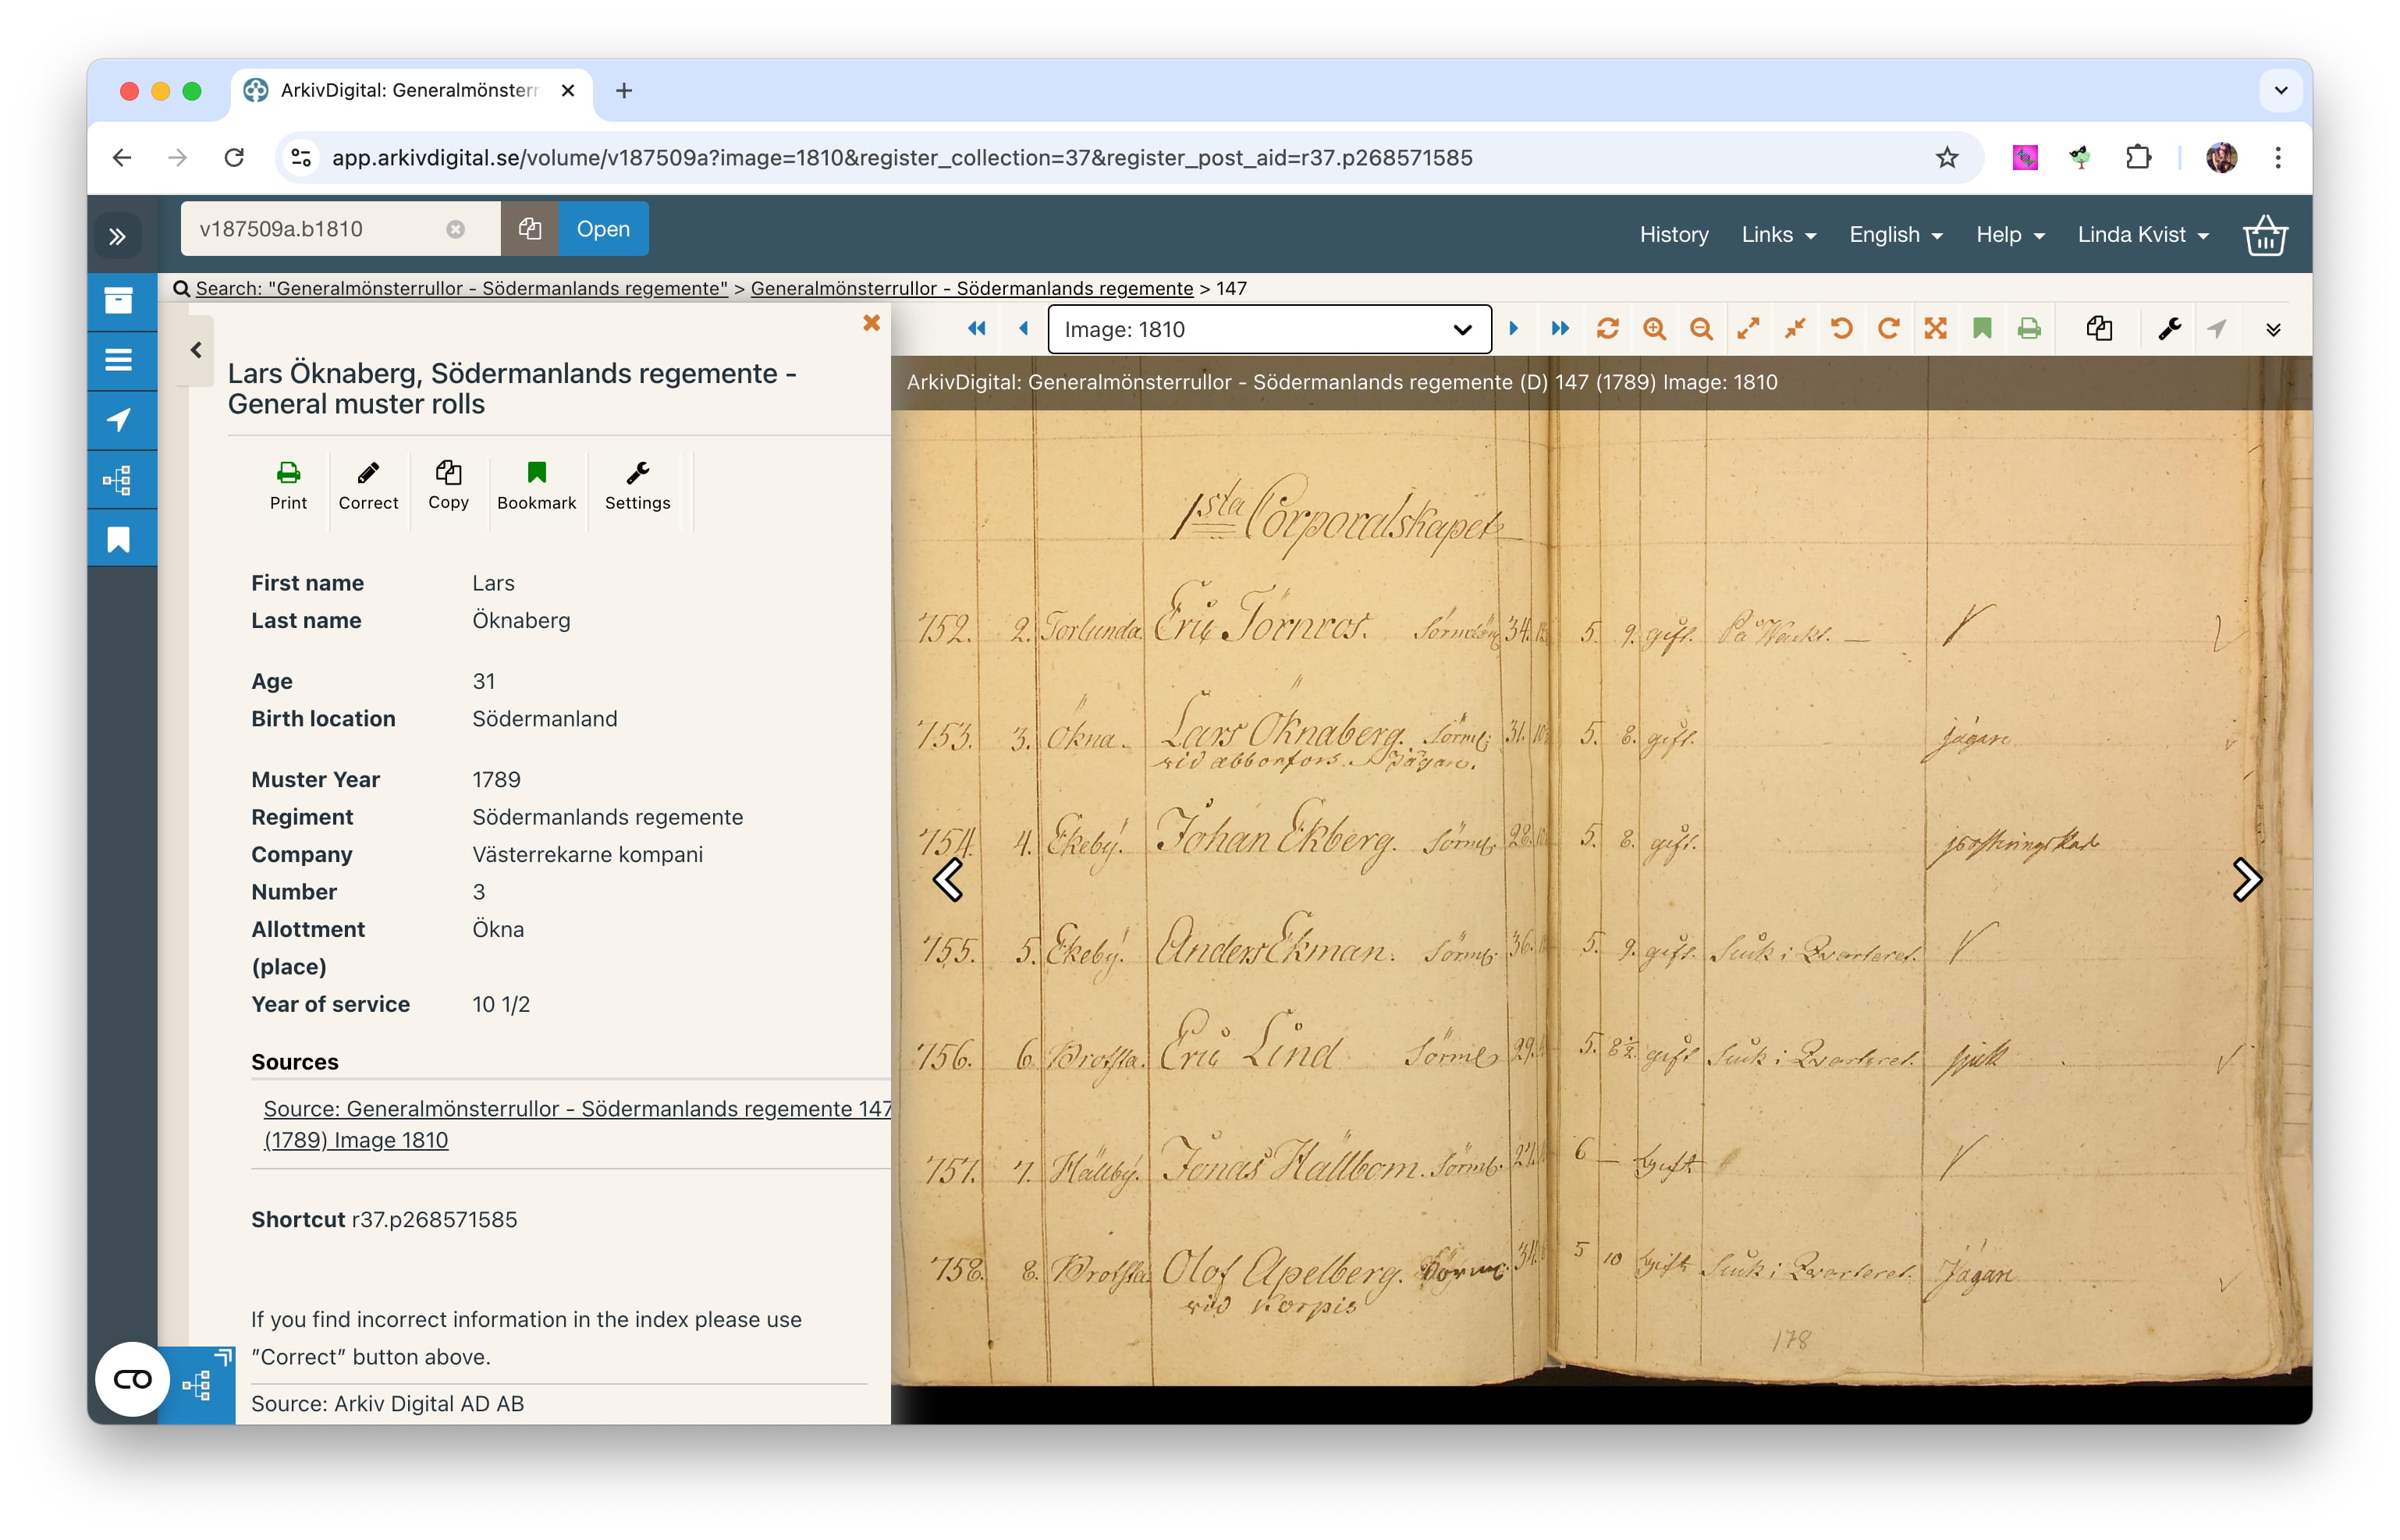 ArkivDigital: Generalmönsterr
app.arkivdigital.se/volume/v187509a?image=1810&register_collection=37&register_post_aid=r37.p268571585
v187509a.b1810
Open
History
Links
English
Help
Linda Kvist
Search: "Generalmönsterrullor - Södermanlands regemente" > Generalmönsterrullor - Södermanlands regemente > 147
Image: 1810
Lars Öknaberg, Södermanlands regemente -
General muster rolls
Print
Correct
Copy
Bookmark
Settings
First name Lars
Last name Öknaberg
Age 31
Birth location Södermanland
Muster Year 1789
Regiment Södermanlands regemente
Company Västerrekarne kompani
Number 3
Allottment Ökna
(place)
Year of service 10 1/2
Sources
Source: Generalmönsterrullor - Södermanlands regemente 147
(1789) Image 1810
Shortcut r37.p268571585
If you find incorrect information in the index please use
"Correct" button above.
Source: Arkiv Digital AD AB
ArkivDigital: Generalmönsterrullor - Södermanlands regemente (D) 147 (1789) Image: 1810
1sta Corporalskapet
752. 2. Torlunda Eric Törnros. 34. 5. 9. gift. På Wackt.
753. 3. Ökna. Lars Öknaberg. Sörml: 31. 10 5. 8. gift. jägare
vid abborfors Jägare.
754. 4. Ekeby. Johan Ekberg. Sörml. 28. 5. 8. gift.
755. 5. Ekeby. Anders Ekman. Sörml. 36. 5. 9. gift. Siuk i Qvarteret.
756. 6. Brotsta. Eric Lind Sörml 29. 5. 8½ gift Siuk i Qvarteret. sjuk
757. 7. Hällby. Jonas Hällbom. Sörml. 27. 6 — gift
758. 8. Brotsta Olof Apelberg. Sörml 34. 5 10 gift Siuk i Qvarteret. Jägare
vid Korpis
178